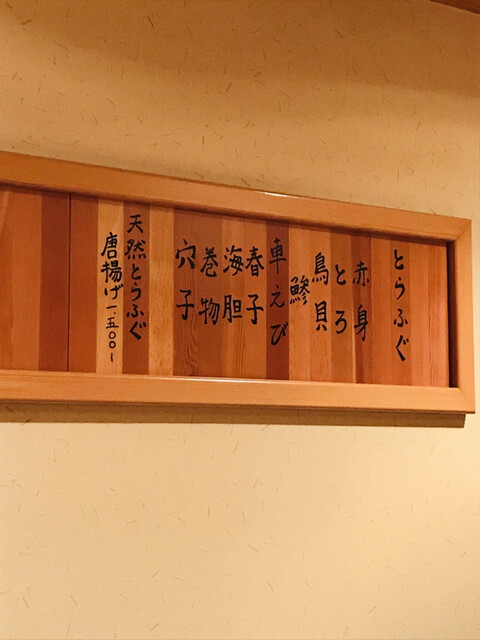 とらふぐ
赤身
とろ
鳥貝
鯵
車えび
春子
海胆
巻物
穴子
天然とらふぐ
唐揚げ一、五〇〇〜